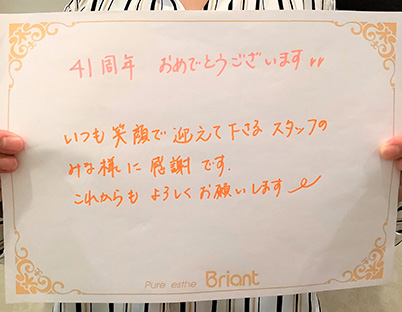 41周年 おめでとうございます
いつも笑顔で迎えて下さるスタッフの
みな様に感謝です.
これからもよろしくお願いします
Pure esthe Briant